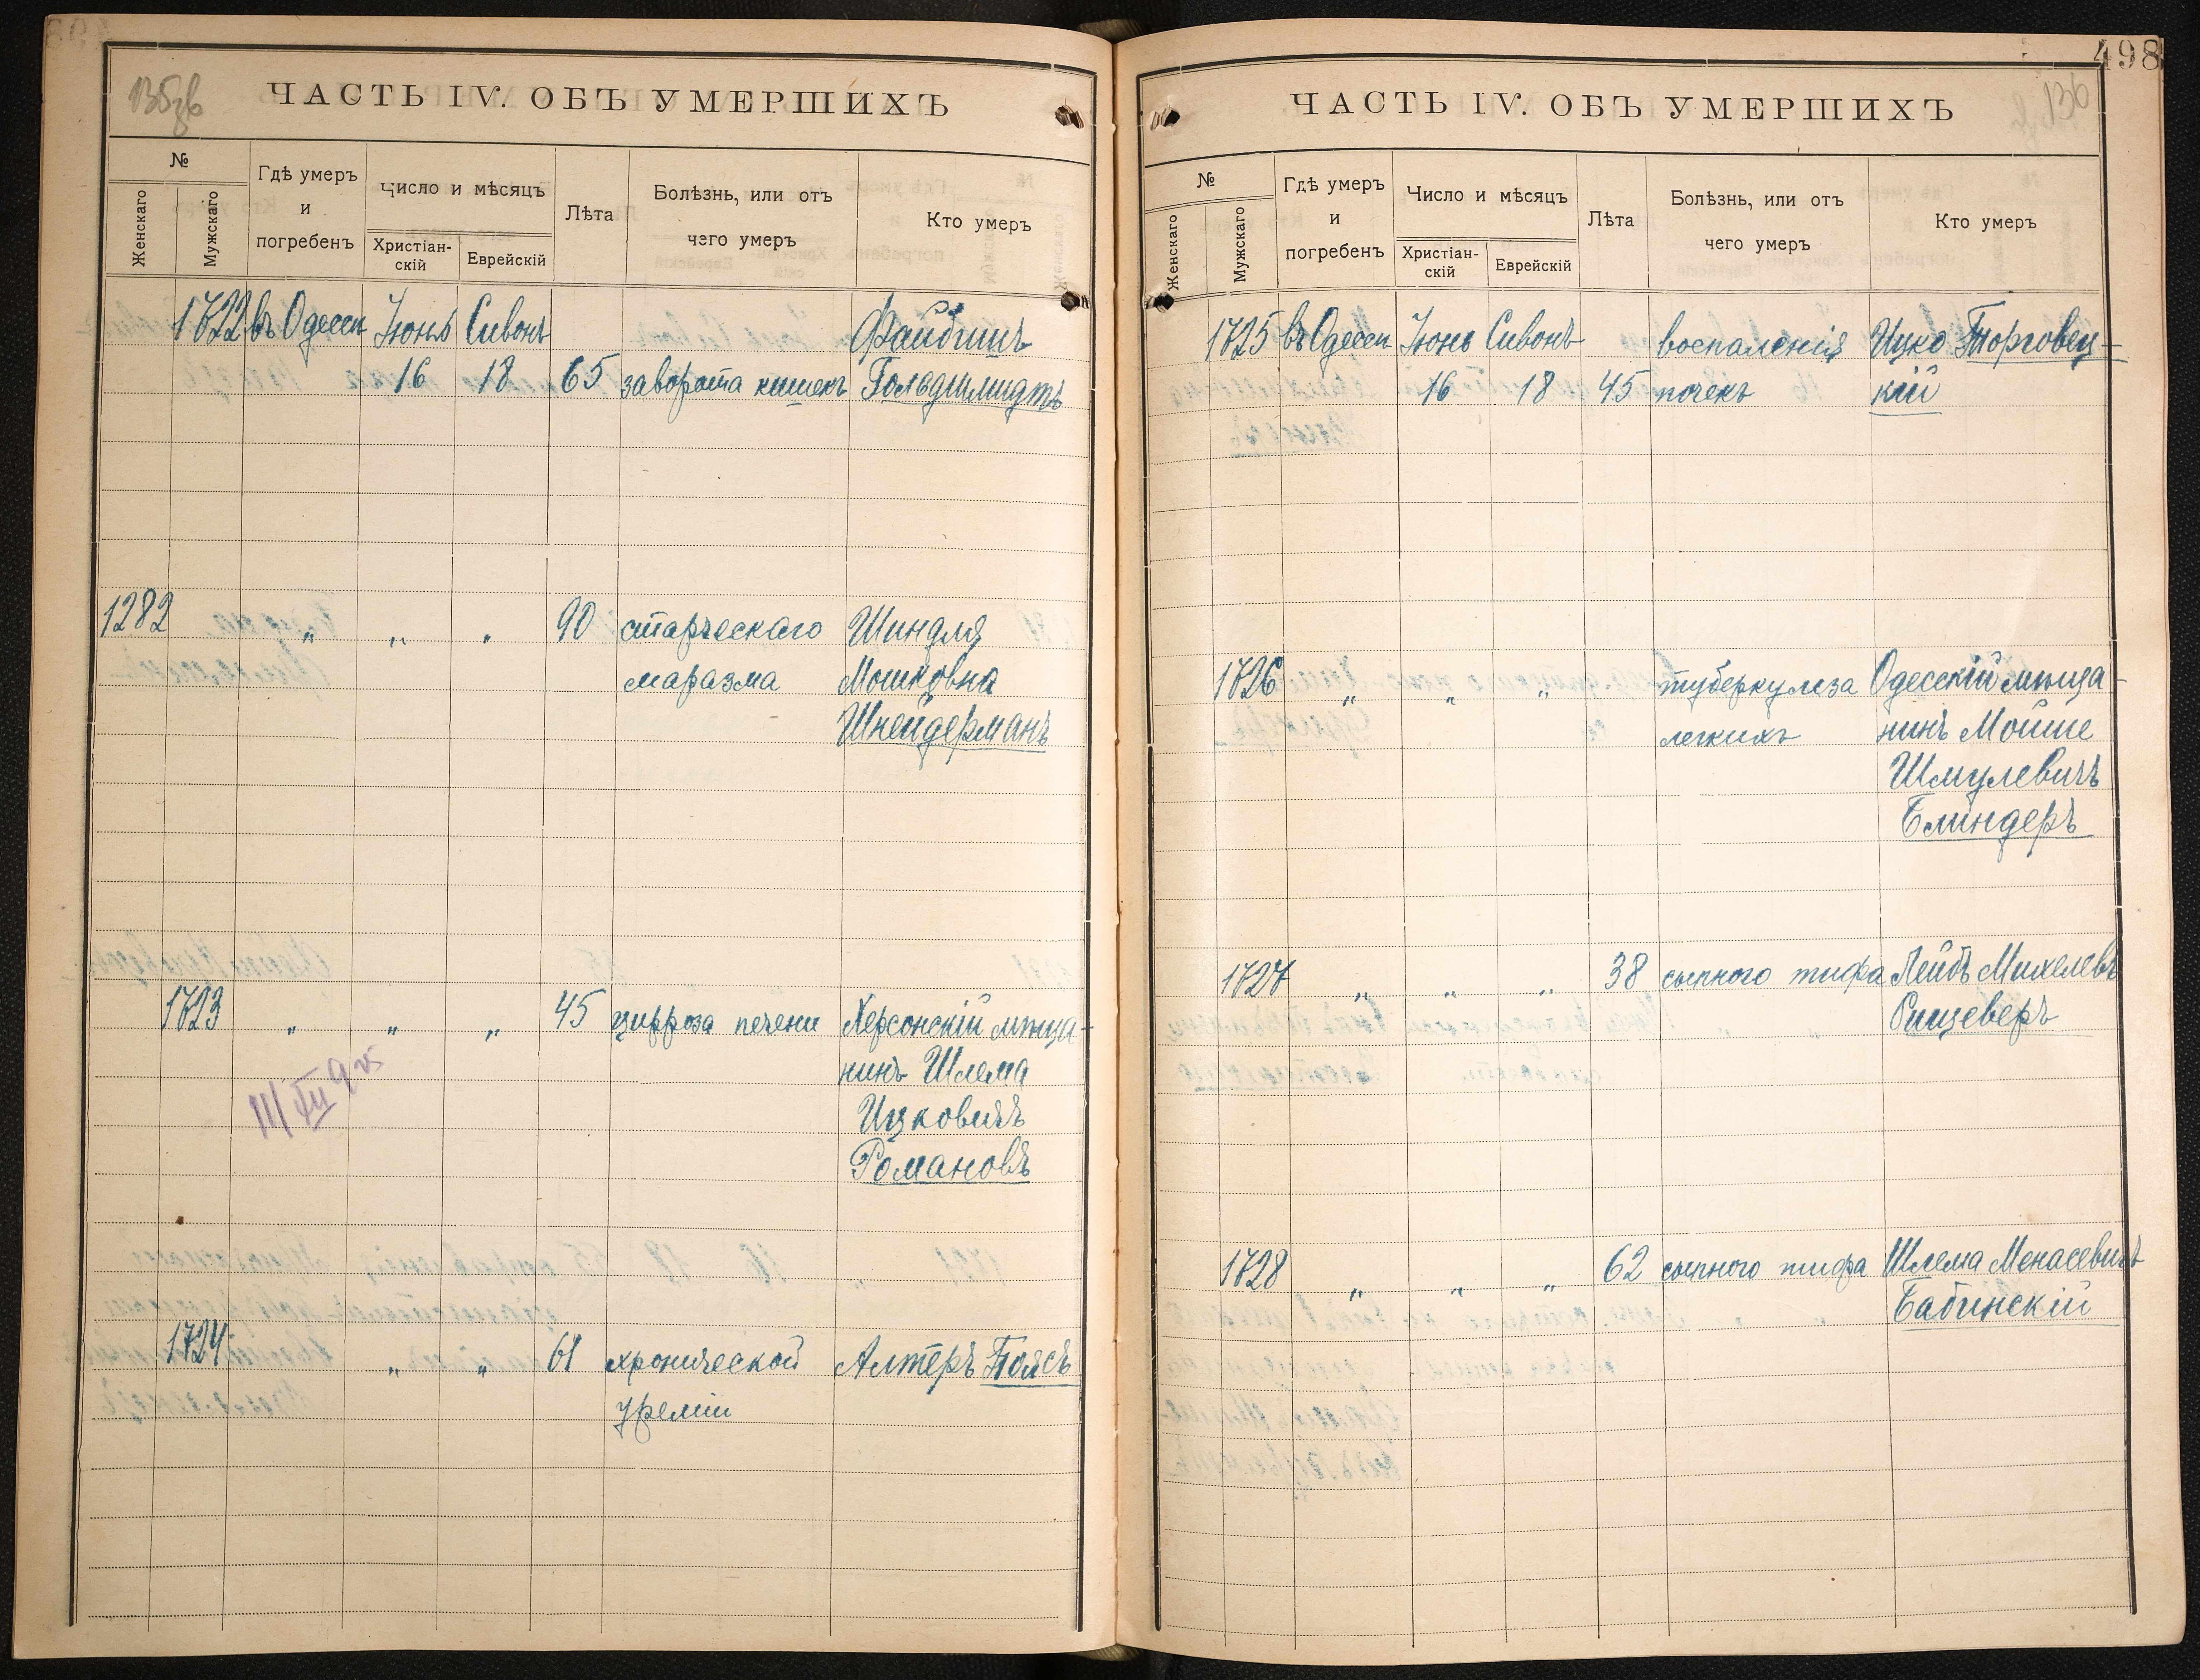 135зв
ЧАСТЬ IV. ОБЪ УМЕРШИХЪ
№
Женскаго
Мужскаго
Гдѣ умеръ
и
погребенъ
Число и мѣсяцъ
Христіан-
скій
Еврейскій
Лѣта
Болѣзнь, или отъ
чего умеръ
Кто умеръ
1722 въ Одессѣ Іюнь Сивонъ Файбишъ
16 18 65 заворота кишекъ Гольдшмидтъ
1282 „ „ „ 90 старческаго Шиндля
маразма Мошковна
Шнейдерманъ
1723 „ „ „ 45 цирроза печени Херсонскій мѣща-
нинъ Шлема
Ицковичъ
Романовъ
11/XII 925
1724 „ „ 61 хронической Алтеръ Поясъ
уреміи
498
136
ЧАСТЬ IV. ОБЪ УМЕРШИХЪ
№
Женскаго
Мужскаго
Гдѣ умеръ
и
погребенъ
Число и мѣсяцъ
Христіан-
скій
Еврейскій
Лѣта
Болѣзнь, или отъ
чего умеръ
Кто умеръ
1725 въ Одессѣ Іюнь Сивонъ воспаленія Ицко Торговец-
16 18 45 почекъ кій
1726 „ „ „ туберкулеза Одесскій мѣща-
легкихъ нинъ Мойше
Шмулевичъ
Блиндеръ
1727 „ „ „ 38 сыпного тифа Лейбъ Михелевъ
Рищеверъ
1728 „ „ „ 62 сыпного тифа Шлема Менасевичъ
Бабинскій